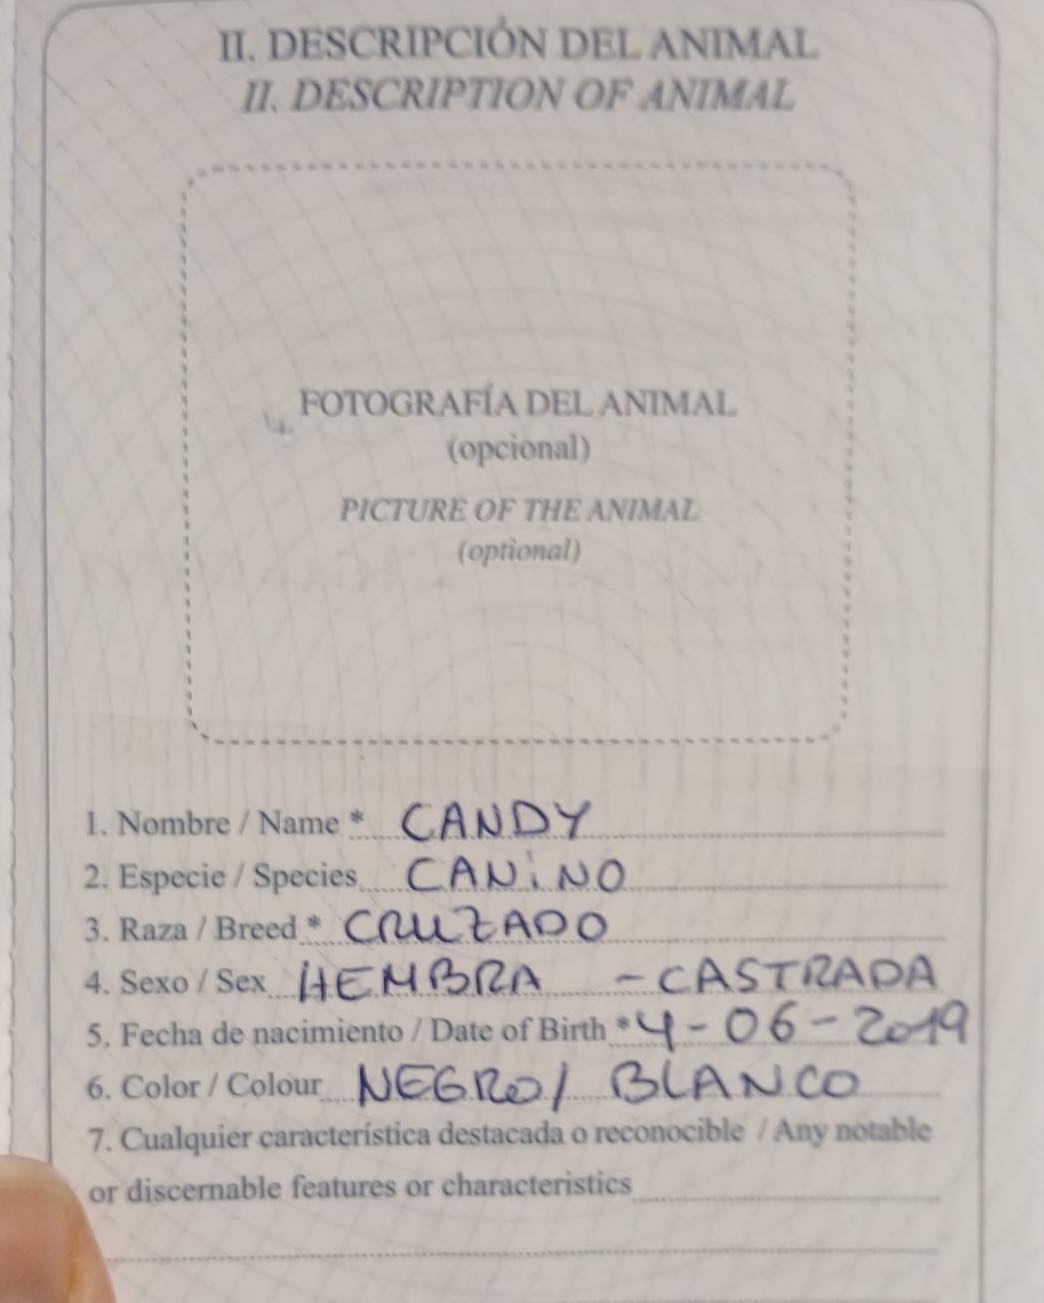 II. DESCRIPCIÓN DEL ANIMAL
II. DESCRIPTION OF ANIMAL
FOTOGRAFÍA DEL ANIMAL
(opcional)
PICTURE OF THE ANIMAL
(optional)
1. Nombre / Name * CANDY
2. Especie / Species CANiNO
3. Raza / Breed * CRUZADO
4. Sexo / Sex HEMBRA - CASTRADA
5. Fecha de nacimiento / Date of Birth * 4-06-2019
6. Color / Colour NEGRO/ BLANCO
7. Cualquier característica destacada o reconocible / Any notable
or discernable features or characteristics